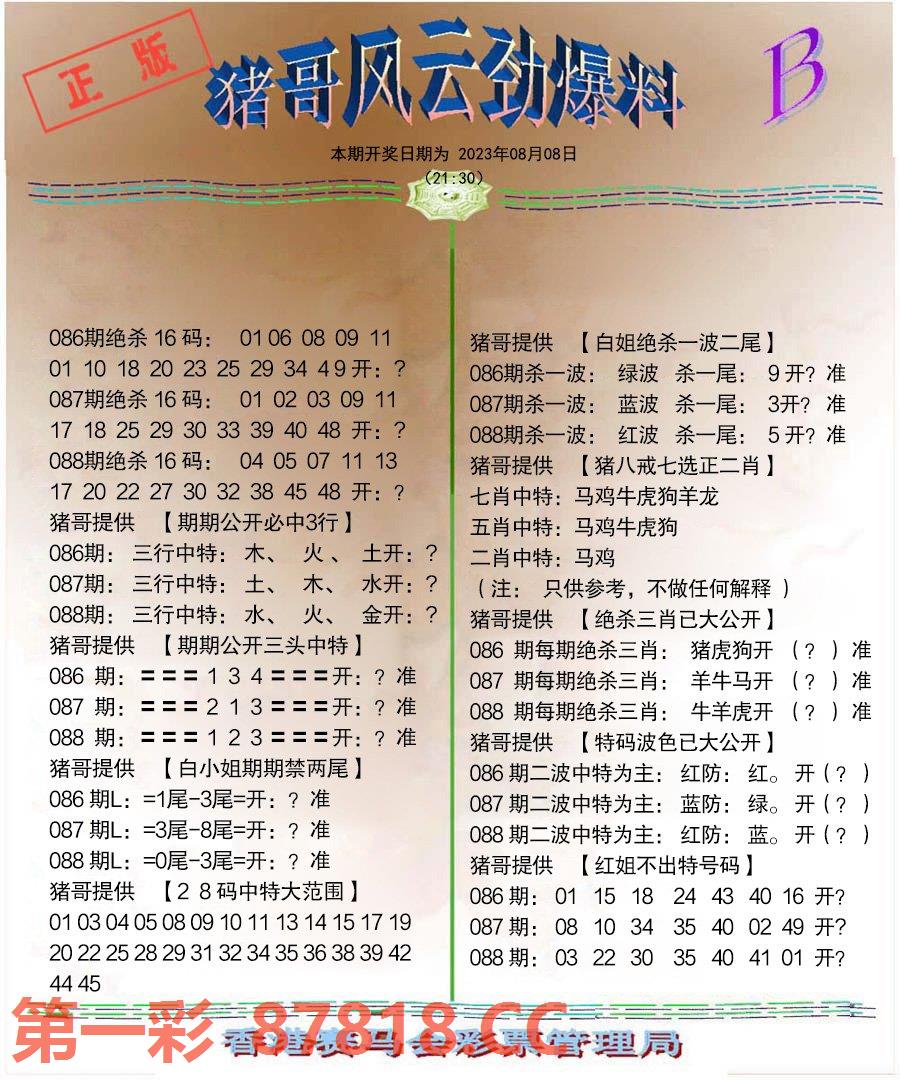 正版
猪哥风云劲爆料
B
本期开奖日期为 2023年08月08日
(21:30)
086期绝杀 16 码： 01 06 08 09 11
01 10 18 20 23 25 29 34 4 9 开：?
087期绝杀 16 码： 01 02 03 09 11
17 18 25 29 30 33 39 40 48 开：?
088期绝杀 16 码： 04 05 07 11 13
17 20 22 27 30 32 38 45 48 开：?
猪哥提供 【期期公开必中3行】
086期： 三行中特： 木、 火 、 土开：?
087期： 三行中特： 土、 木、 水开：?
088期： 三行中特： 水、 火、 金开：?
猪哥提供 【期期公开三头中特】
086 期：=== 1 3 4 ===开：? 准
087 期：=== 2 1 3 ===开：? 准
088 期：=== 1 2 3 ===开：? 准
猪哥提供 【白小姐期期禁两尾】
086 期L：=1尾-3尾=开：? 准
087 期L：=3尾-8尾=开：? 准
088 期L：=0尾-3尾=开：? 准
猪哥提供 【2 8 码中特大范围】
01 03 04 05 08 09 10 11 13 14 15 17 19
20 22 25 28 29 31 32 34 35 36 38 39 42
44 45
猪哥提供 【白姐绝杀一波二尾】
086期杀一波： 绿波 杀一尾： 9 开? 准
087期杀一波： 蓝波 杀一尾： 3开? 准
088期杀一波： 红波 杀一尾： 5 开? 准
猪哥提供 【猪八戒七选正二肖】
七肖中特：马鸡牛虎狗羊龙
五肖中特：马鸡牛虎狗
二肖中特：马鸡
（注： 只供参考，不做任何解释 ）
猪哥提供 【绝杀三肖已大公开】
086 期每期绝杀三肖： 猪虎狗开 （? ）准
087 期每期绝杀三肖： 羊牛马开 （? ）准
088 期每期绝杀三肖： 牛羊虎开 （? ）准
猪哥提供 【特码波色已大公开】
086 期二波中特为主： 红防： 红。 开（? ）
087 期二波中特为主： 蓝防： 绿。 开（? ）
088 期二波中特为主： 红防： 蓝。 开（? ）
猪哥提供 【红姐不出特号码】
086 期： 01 15 18 24 43 40 16 开?
087 期： 08 10 34 35 40 02 49 开?
088 期： 03 22 30 35 40 41 01 开?
第一彩 87818.CC
香港赛马会彩票管理局